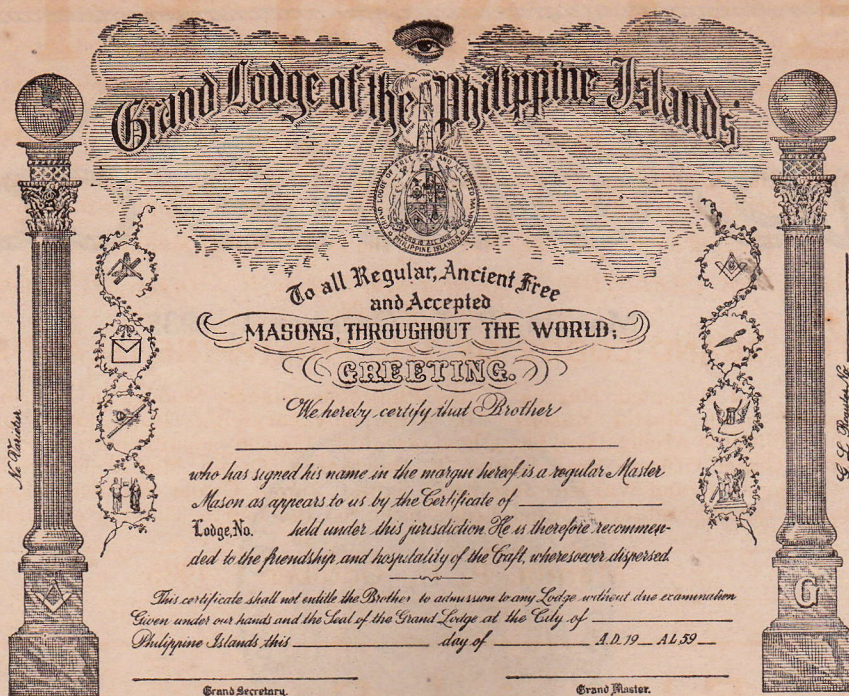 Grand Lodge of the Philippine Islands
To all Regular, Ancient Free
and Accepted
MASONS, THROUGHOUT THE WORLD;
GREETING.
We hereby certify that Brother
who has signed his name in the margin hereof is a regular Master
Mason as appears to us by the Certificate of
Lodge, No. held under this jurisdiction. He is therefore recommen-
ded to the friendship and hospitality of the Craft, wheresoever dispersed
This certificate shall not entitle the Brother to admission to any Lodge without due examination
Given under our hands and the Seal of the Grand Lodge at the City of
Philippine Islands, this day of A.D. 19 A.L. 59
Grand Secretary.
Grand Master.
Ne Varietur
G